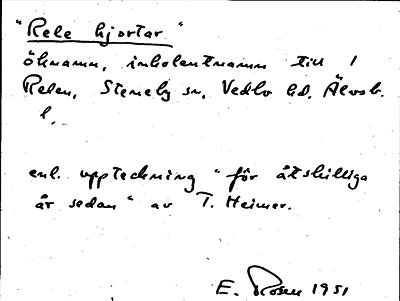 "Rele hjortar"
öknamn, inbolentnamn till 1
Relen, Steneby sn, Vedbo hd. Älvsb.
l.
enl. uppteckning "för åtskilliga
år sedan" av T. Heimer.
E. Rosen 1951